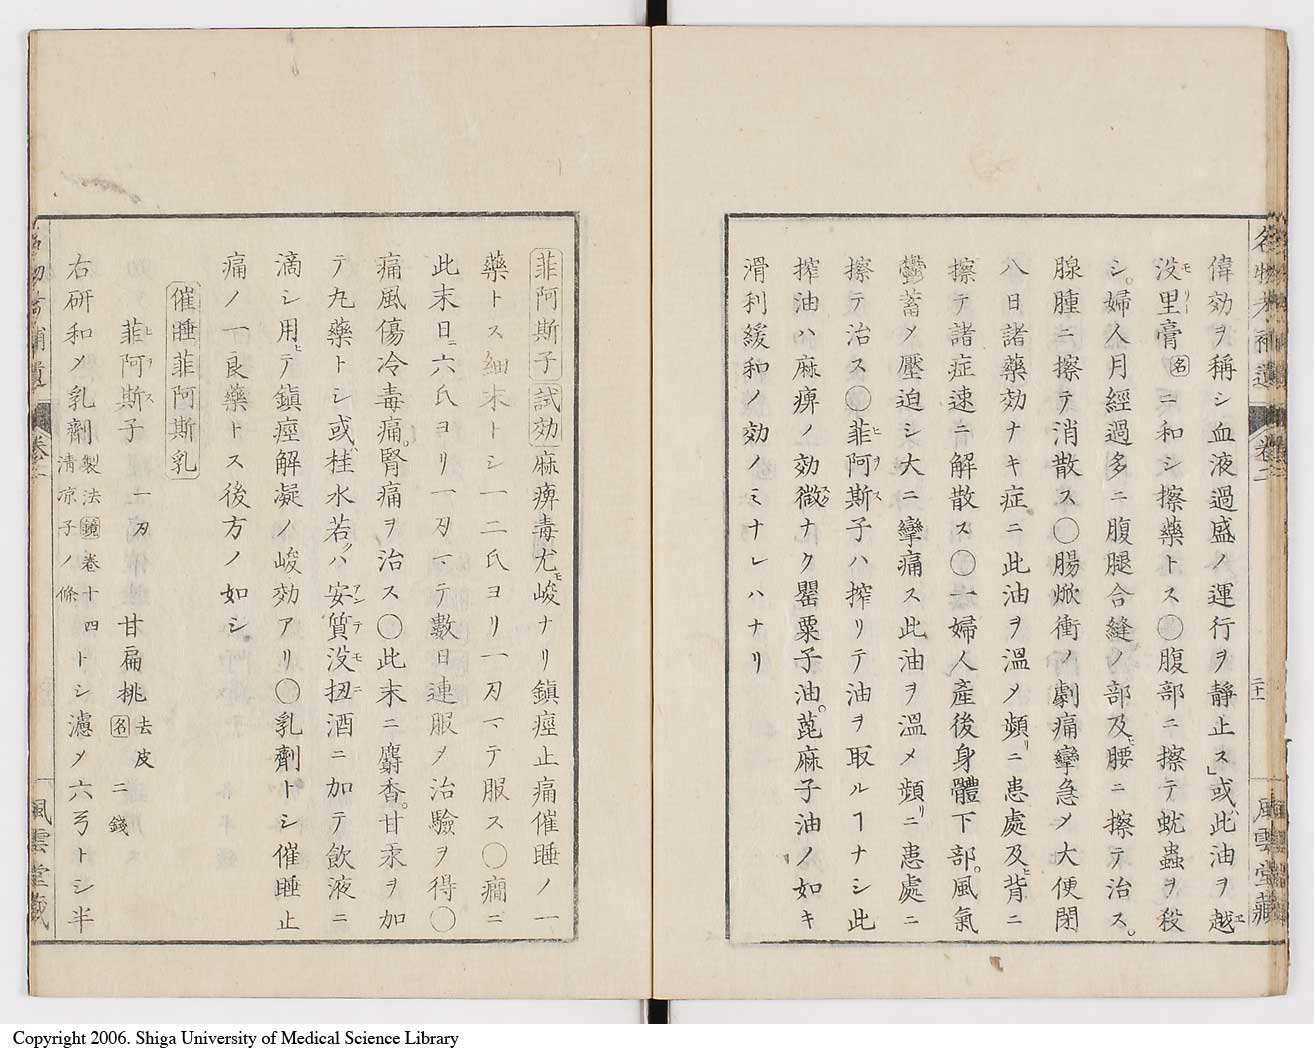 名物考補遺 卷二 二十一 風雲堂藏
偉効ヲ稱シ血液過盛ノ運行ヲ靜止ス」或ハ此油ヲ越エ
没里膏名ニ和シ擦藥トス○腹部ニ擦テ蚘蟲ヲ殺
シ。婦人月經過多ニ腹腿合縫ノ部及ヒ腰ニ擦テ治ス。
腺腫ニ擦テ消散ス○腸焮衝ノ劇痛攣急メ大便閉
八日諸藥効ナキ症ニ此油ヲ溫メ頻リニ患處及ヒ背ニ
擦テ諸症速ニ解散ス○一婦人產後身體下部。風氣
鬱蓄メ壓迫シ大ニ攣痛ス此油ヲ溫メ頻リニ患處ニ
擦テ治ス○菲阿斯子ハ搾リテ油ヲ取ルヿナシ此
搾油ハ麻痹ノ効微ナク罌粟子油。蓖麻子油ノ如キ
滑利緩和ノ効ノミナレハナリ
菲阿斯子 試効 麻痹毒尤モ峻ナリ鎮痙止痛催睡ノ一
藥トス細末トシ一二氏ヨリ一刃マテ服ス○癎ニ
此末日ニ六氏ヨリ一刃マテ數日連服メ治驗ヲ得○
痛風傷冷毒痛。腎痛ヲ治ス○此末ニ麝香。甘汞ヲ加
テ丸藥トシ或ハ桂水若クハ安質没扭酒ニ加テ飲液ニ
滴シ用ヒテ鎮痙解凝ノ峻効アリ○乳劑トシ催睡止
痛ノ一良藥トス後方ノ如シ
催睡菲阿斯乳
菲阿斯子 一刃 甘扁桃 去皮 名 二錢
右研和メ乳劑 製法鏡卷十四 清凉子ノ條 トシ濾メ六弓トシ半
卷二 風雲堂藏
Copyright 2006. Shiga University of Medical Science Library